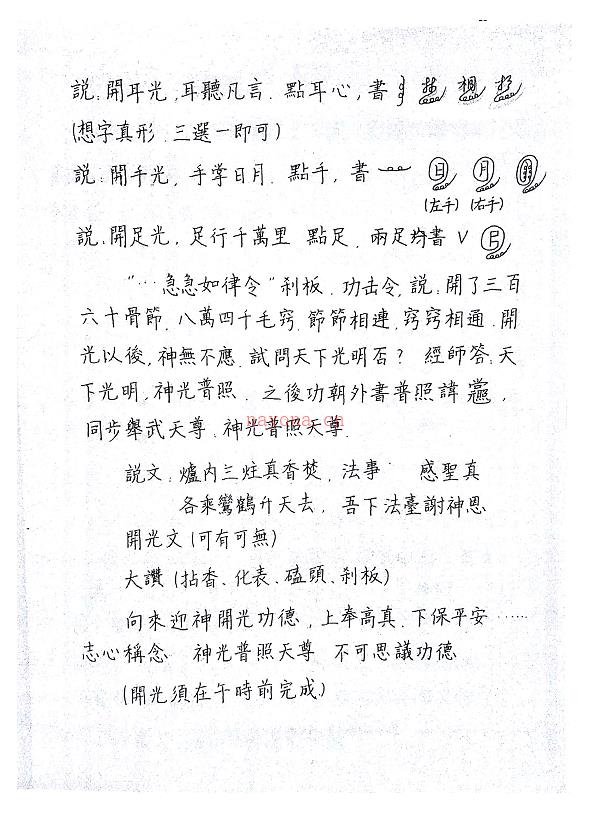 説:開耳光,耳聽凡言.點耳心,書
(想字真形.三選一即可)
説:開手光,手掌日月.點手,書 日 月
(左手) (右手)
説:開足光,足行千萬里 點足.兩足均書
"…急急如律令"刹板.功击令,説:開了三百
六十骨節.八萬四千毛窍.節節相連,窍窍相通.開
光以後,神無不應.試問天下光明否? 經師答:天
下光明,神光普照.之後功朝外書普照諱,
nayona.cn
同步舉武天尊:神光普照天尊.
説文:爐内三炷真香焚,法事 感聖真
各乘鸞鶴升天去,吾下法臺謝神恩
開光文(可有可無)
大讚(拈香、化表、磕頭、刹板)
向來迎神開光功德,上奉高真.下保平安……
志心稱念 神光普照天尊 不可思議功德
(開光須在午時前完成)